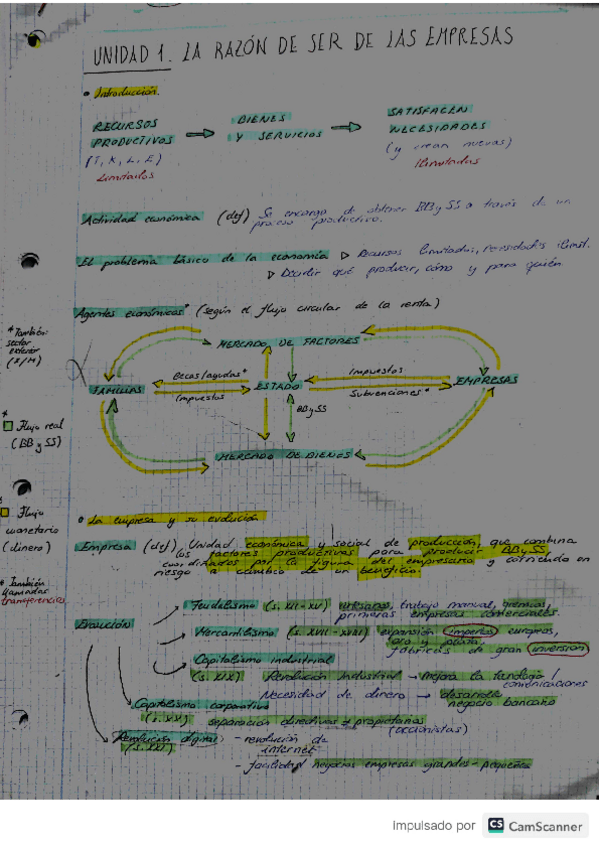 UNIDAD 1. LA RAZÓN DE SER DE LAS EMPRESAS
Introducción.
RECURSOS PRODUCTIVOS → BIENES Y SERVICIOS → SATISFACEN NECESIDADES
(T, K, L, E)
Limitados
(y crean nuevas)
Ilimitadas
Actividad económica (def) Se encarga de obtener BB y SS a través de un
proceso productivo.
El problema básico de la economía ▷ Recursos limitados, necesidades ilimit.
▷ Decidir qué producir, cómo y para quién
Agentes económicos* (según el flujo circular de la renta)
* También:
sector
exterior
(X/M)
MERCADO DE FACTORES
Becas/ayudas*
Impuestos
FAMILIAS
ESTADO
EMPRESAS
Impuestos
Subvenciones*
BB y SS
MERCADO DE BIENES
* Flujo real
(BB y SS)
Flujo
monetario
(dinero)
* También
llamadas
transferencias
La empresa y su evolución
Empresa (def) Unidad económica y social de producción, que combina
los factores productivos para producir BB y SS,
coordinados por la figura del empresario y corriendo un
riesgo a cambio de un beneficio.
Evolución
Feudalismo (s. XII-XV) artesanos, trabajo manual, gremios,
primeras empresas comerciales.
Mercantilismo (s. XVII-XVIII) expansión imperios europeos,
oro y plata,
fábricas de gran inversión
Capitalismo industrial
(s. XIX) Revolución Industrial → mejora la tecnología /
comunicaciones
Necesidad de dinero → desarrolla
negocio bancario
Capitalismo corporativo
(s. XX) separación directivos ≠ propietarios
(accionistas)
Revolución digital
(s. XXI)
- revolución de
internet
- facilidad negocios empresas grandes - pequeñas
Impulsado por CS CamScanner